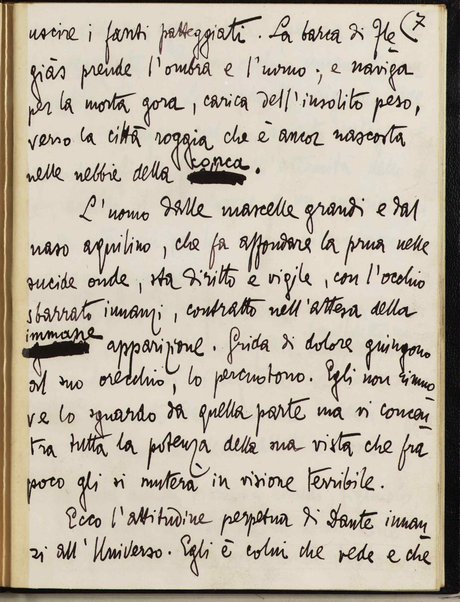 7
uscire i fanti patteggiati. La barca di Fle
giàs prende l'ombra e l'uomo; e naviga
per la morta gora, carica dell'insolito peso,
verso la città roggia che è ancor nascosta
nelle nebbie della conca.
L'uomo dalle mascelle grandi e dal
naso aquilino, che fa affondare la prua nelle
sucide onde, sta diritto e vigile, con l'occhio
sbarrato innanzi, contratto nell'attesa della
immane
apparizione. Grida di dolore giungono
al suo orecchio, lo percuotono. Egli non rimuo
ve lo sguardo da quella parte ma vi concen
tra tutta la potenza della sua vista che fra
poco gli si muterà in visione terribile.
Ecco l'attitudine perpetua di Dante innan
zi all'Universo. Egli è colui che vede e che